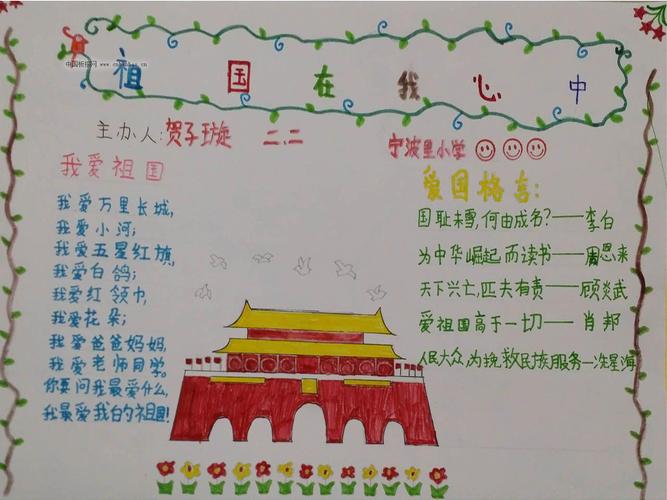 祖国在我心中
中国折纸网
主办人:贺子璇 二、二
宁波里小学
我爱祖国
我爱万里长城,
我爱小河;
我爱五星红旗,
我爱白鸽;
我爱红领巾,
我爱花朵;
我爱爸爸妈妈,
我爱老师同学。
你要问我最爱什么,
我最爱我的祖国!
爱国格言:
国耻未雪,何由成名?——李白
为中华崛起而读书——周恩来
天下兴亡,匹夫有责——顾炎武
爱祖国高于一切——肖邦
人民大众,为挽救民族服务—冼星海